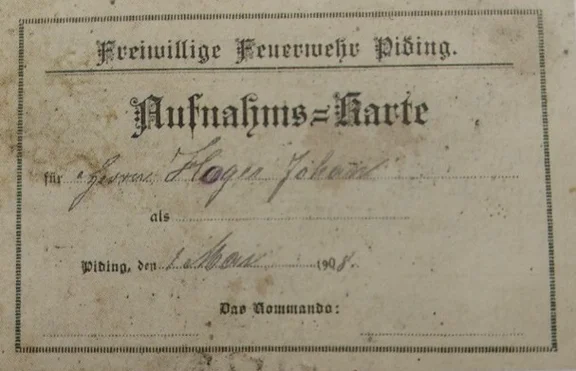 Freiwillige Feuerwehr Piding.
Aufnahms=Karte
für Herrn Hager Johann
als
Piding, den 1. Mai 1908.
Das Kommando: